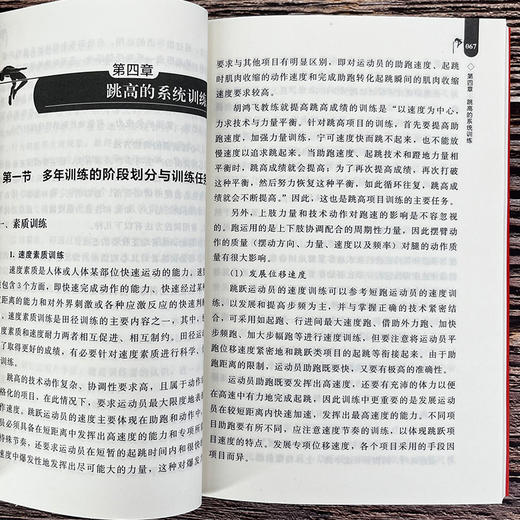 第四章
跳高的系统训练
第一节 多年训练的阶段划分与训练任
一、素质训练
1. 速度素质训练
速度素质是人体或人体某部位快速运动的能力。速度
包含3个方面,即快速完成动作的能力、快速经过某种
距离的能力和对外界刺激或各种应激反应的快速判
度素质训练是田径训练的主要内容之一,其中,
速度素质和速度耐力两者相互促进、相互制约。田径运
了取得更好的成绩,有必要针对速度素质进行科学、
跳高的技术动作复杂、协调性要求高,且属于动作
格化的项目,在此情况下,要求运动员最大限度地表
作速度。跳跃运动员的速度主要体现在助跑和动作中,
员必须具备在短距离中发挥出高速度的能力和专项所
特殊节奏,还要求运动员在短暂的起跳时间内和很
度中爆发性地发挥出尽可能大的力量,这种对爆发
067
第四章 跳高的系统训练
要求与其他项目有明显区别,即对运动员的助跑速度、起跳
时肌肉收缩的动作速度和完成助跑转化起跳瞬间的肌肉收缩
速度要求较高。
胡鸿飞教练统提高跳高成绩的训练是“以速度为中心,
力求技术与力量平衡”。针对跳高项目的训练,首先要提高助
跑速度、加强力量训练,宁可速度快而跳不起来,也不能放
慢速度以追求跳起来。当助跑速度、起跳技术和蹬地力量相
平衡时,跳高成绩就会提高;为了再次提高成绩,再次打破
这种平衡,然后努力恢复这种平衡,如此循环往复,跳高成
绩就会不断提高”。因此,这也是跳高项目的主要任务。
另外,上肢力量和技术动作对跑速的影响是不容忽视
的。跑运用的是上下肢协调配合的周期性力量。因此摆臂动
作的质量(摆动方向、力量、速度以及频率)对腿的动作质
量有很大影响。
(1)发展位移速度
跳跃运动员的速度训练可以参考短跑运动员的速度训
练,以发展和提高步频为主,并与掌握正确的技术紧密结
合,可采用如起跑、行进间最大速度跑、借助外力跑、加快
步频跑、加大步幅跑等进行速度训练,但要注意将运动员平
跑位移速度紧密地和跳跃类项目的起跳等衔接起来。由于助
跑距离的限制,运动员助跑既要快,又要有极高的准确性。
运动员助跑既要发挥出高速度,还要有充沛的体力以便
在高速中有力地完成起跳。因此训练中更重要的是发展运动
员在较短距离内快速加速,发挥出最高速度的能力。不同项
目助跑要有所不同,应注意速度节奏的训练,以体现跳跃项
目速度的特点。发展专项位移速度,各个项目采用的手段因
项目而异。